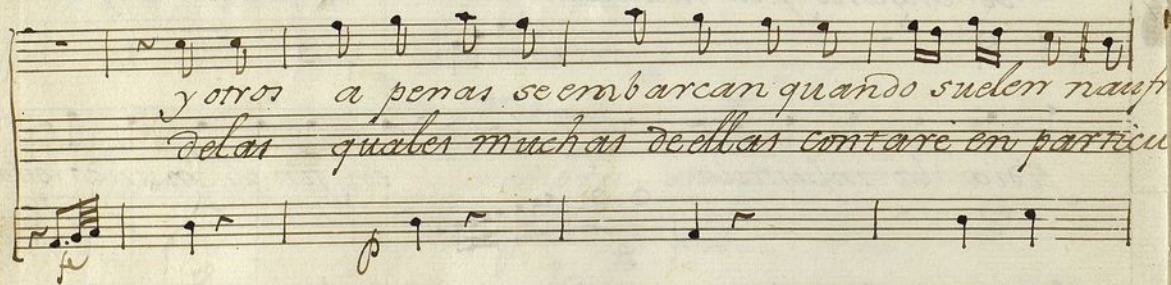 y otros a penas se embarcan quando suelen nauf
de las quales muchas de ellas contare en particu
fe p